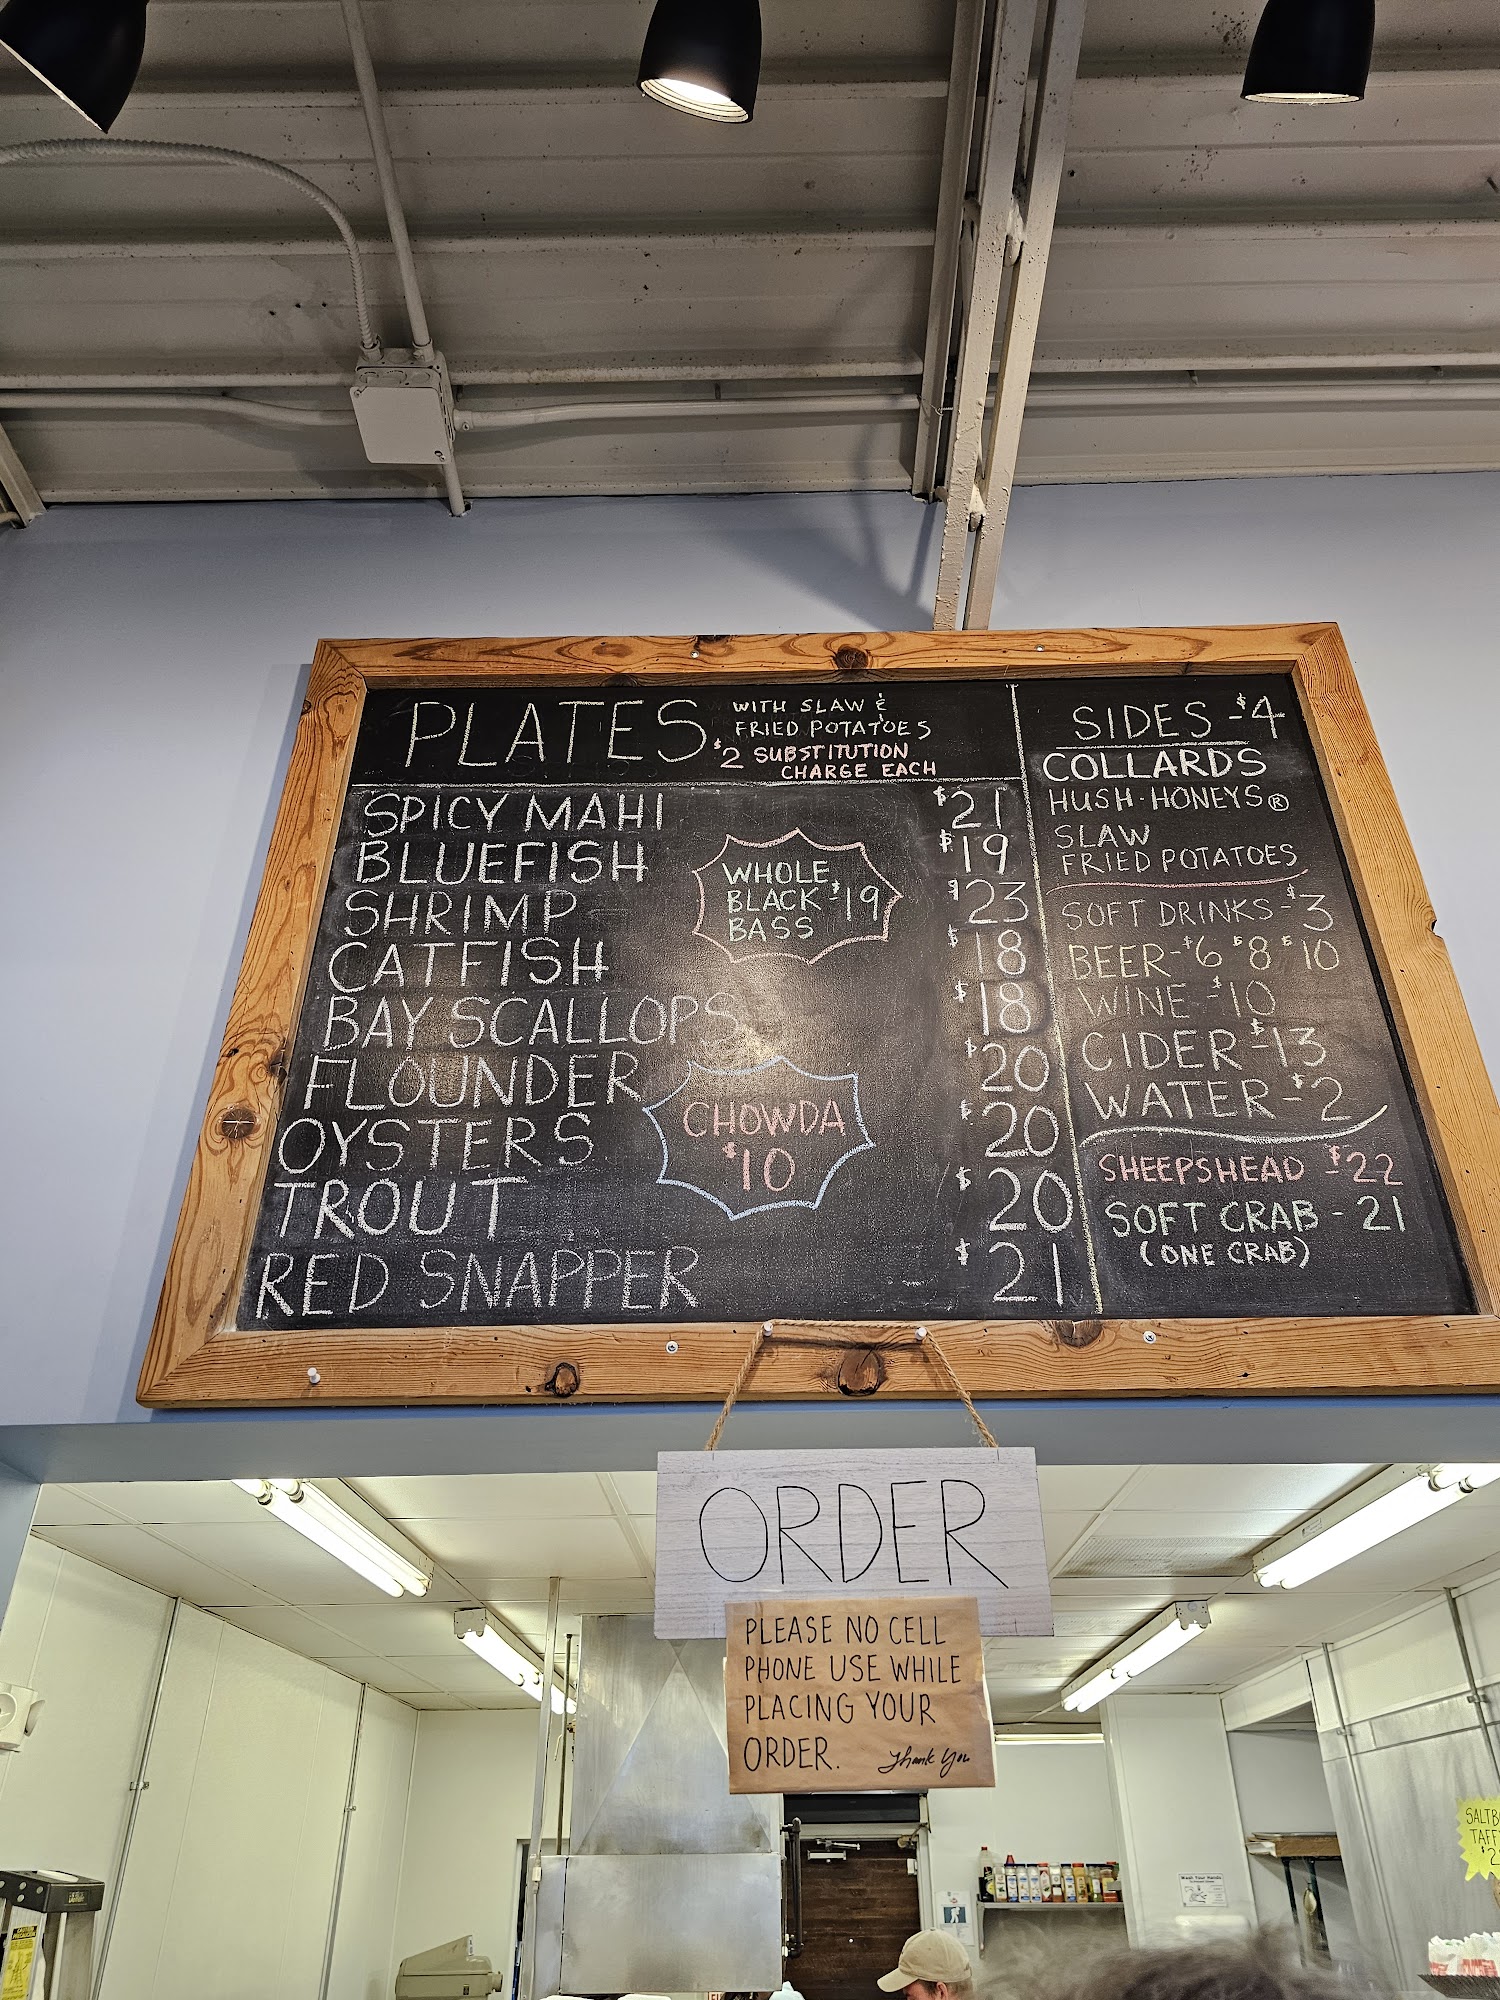 PLATES WITH SLAW &
FRIED POTATOES
$2 SUBSTITUTION
CHARGE EACH
SPICY MAHI $21
BLUEFISH $19
SHRIMP $23
CATFISH $18
BAY SCALLOPS $18
FLOUNDER $20
OYSTERS $20
TROUT $20
RED SNAPPER $21
WHOLE
BLACK - $19
BASS
CHOWDA
$10
SIDES - $4
COLLARDS
HUSH·HONEYS®
SLAW
FRIED POTATOES
SOFT DRINKS - $3
BEER - $6 $8 $10
WINE - $10
CIDER - $13
WATER - $2
SHEEPSHEAD - $22
SOFT CRAB - 21
(ONE CRAB)
ORDER
PLEASE NO CELL
PHONE USE WHILE
PLACING YOUR
ORDER. Thank You
Wash Your Hands